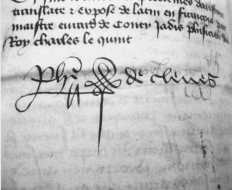 translate et expose de latin en francois par
maistre evrard de Conty jadis phisicien du
Roy charles le quint
de cleves